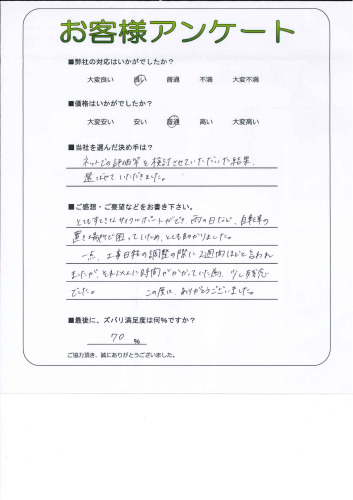 お客様アンケート
■弊社の対応はいかがでしたか？
大変良い 良い 普通 不満 大変不満
■価格はいかがでしたか？
大変安い 安い 普通 高い 大変高い
■当社を選んだ決め手は？
ネットでの評価等を検討させていただいた結果、
選ばせていただきました。
■ご感想・ご要望などをお書き下さい。
とてもすてきなサイクルポートができ、雨の日など、自転車の
置き場所で困っていたため、とても助かりました。
一点、工事日程の調整の際に2週間ほどと言われ
ましたが、それ以上に時間がかかっていた為、少し残念
でした。 この度は、ありがとうございました。
■最後に、ズバリ満足度は何%ですか？
70 %
ご協力頂き、誠にありがとうございました。